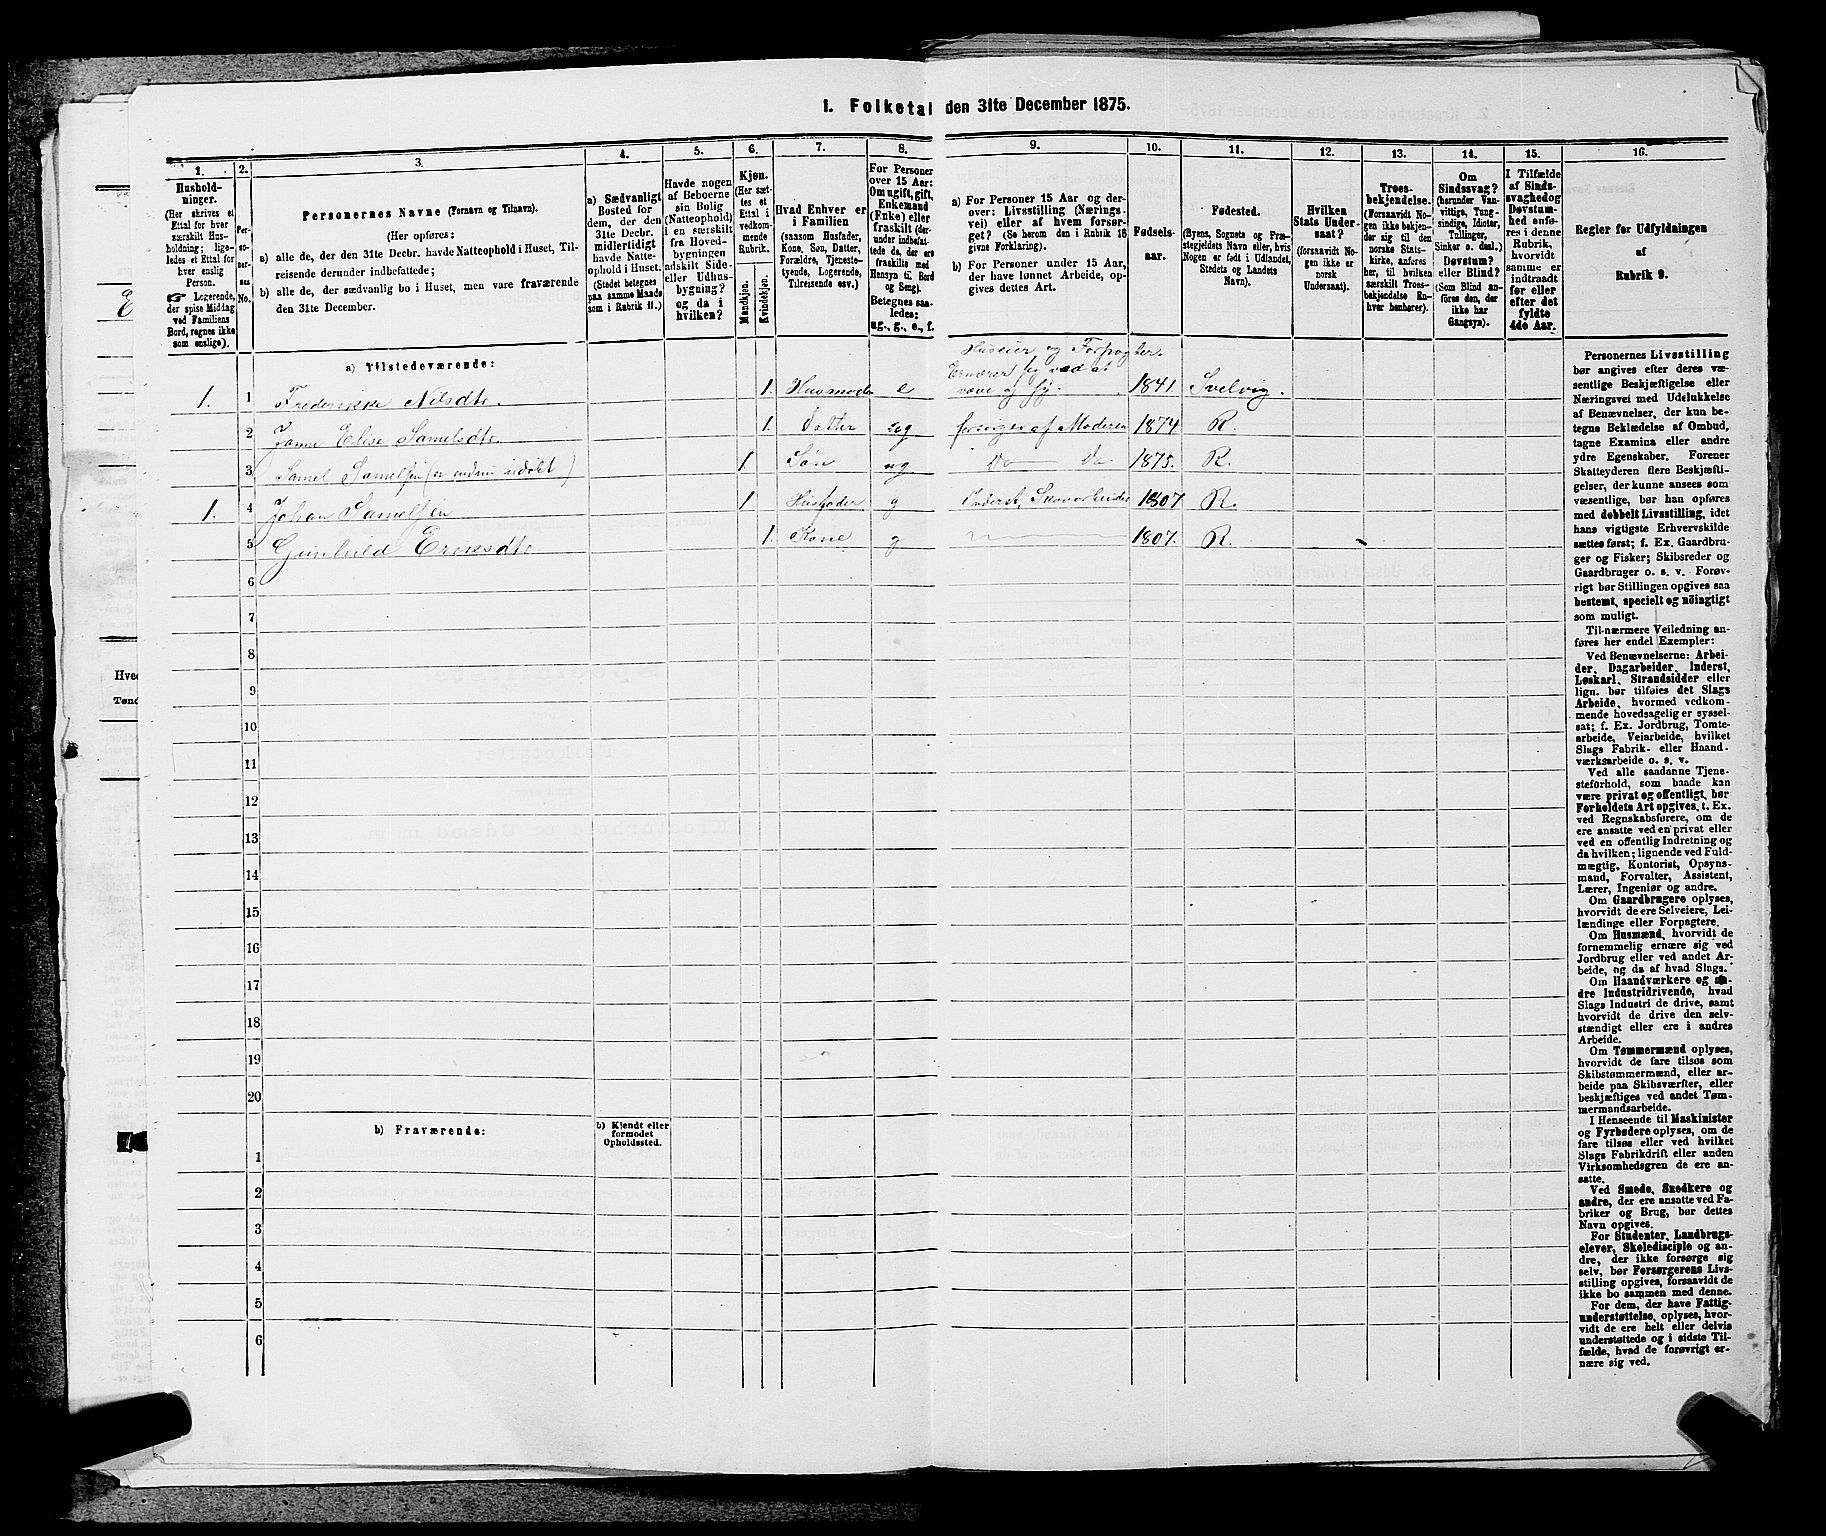 1. Folketal den 31te December 1875.
1. 2. 3. 4. 5. 6. 7. 8. 9. 10. 11. 12. 13. 14. 15. 16.
Hushold-
ninger.
(Her skrives et
Ettal for hver
særskilt Hus-
holdning; lige-
ledes et Ettal for
hver enslig
Person.
☞ Logerende,
der spise Middag
ved Familiens
Bord, regnes ikke
som enslige).
Per-
so-
ner-
nes
No.
Personernes Navne (Fornavn og Tilnavn).
(Her opføres:
a) alle de, der den 31te Decbr. havde Natteophold i Huset, Til-
reisende derunder indbefattede;
b) alle de, der sædvanlig bo i Huset, men vare fraværende
den 31te December.
a) Sædvanligt
Bosted for
dem, der den
31te Decbr.
midlertidigt
havde Natte-
ophold i Huset.
(Stedet betegnes
paa samme Maade
som i Rubrik 11.)
Havde nogen
af Beboerne
sin Bolig
(Natteophold)
i en særskilt
fra Hoved-
bygningen
adskilt Side-
eller Udhus-
bygning?
og da i
hvilken?
Kjøn.
(Her sæt-
tes et
Ettal i
vedkom-
mende
Rubrik.)
Mandkjøn.
Kvindekjøn.
Hvad Enhver er
i Familien
(saasom Husfader,
Kone, Søn, Datter,
Forældre, Tjeneste-
tyende, Logerende,
Tilreisende osv.)
For Personer
over 15 Aar:
Om ugift, gift,
Enkemand
(Enke) eller
fraskilt (der-
under indbefat-
tede da, der ere
fraskilte med
Hensyn til Bord
og Seng).
Betegnes saa-
ledes:
ug., g., e., f.
a) For Personer 15 Aar og der-
over: Livsstilling (Nærings-
vei) eller af hvem forsør-
get? (Se herom den i Rubrik 16
givne Forklaring).
b) For Personer under 15 Aar,
der have lønnet Arbeide, op-
gives dettes Art.
Fødsels-
aar.
Fødested.
(Byens, Sognets og Præ-
stegjeldets Navn eller, hvis
Nogen er født i Udlandet,
Stedets og Landets
Navn).
Hvilken
Stats Under-
saat?
(forsaavidt No-
gen ikke er
norsk
Undersaat).
Troes-
bekjendelse.
(Forsaavidt No-
gen ikke bekjen-
der sig til den
norske Stats-
kirke, anføres
her, til hvilken
særskilt Troes-
bekjendelse En-
hver henhører).
Om
Sindssvag?
(herunder Van-
vittige, Tung-
sindige, Idioter,
Tullinger,
Sinker o. desl.)
Døvstum?
eller Blind?
(Som Blind an-
føres den, der
ikke har
Gangsyn).
I Tilfælde
af Sinds-
svaghed og
Døvstum-
hed anfø-
res i denne
Rubrik,
hvorvidt
samme er
indtraadt
før eller
efter det
fyldte
4de Aar.
Regler for Udfyldningen
af
Rubrik 9.
a) Tilstedeværende:
Huseier og Forpagter.
Ernærer sig ved at
1. 1 Frederikke Nilsdtr. 1. Husmoder e væve og sy. 1841. Svelvig.
2 Janne Elise Samelsdtr. 1. Datter ug forsørges af Moderen 1874 R.
3 Samel Samelsen (er endnu udøbt) 1 Søn ug Do Do 1875. R.
1. 4 Johan Samelsen 1 Husfader g Inderst, Skovarbeider 1807 R.
5 Gunhild Ernsdtr. 1. Kone g 1807. R.
6
7
8
9
10
11
12
13
14
15
16
17
18
19
20
b) Fraværende:
b) Kjendt eller
formodet
Opholdssted.
1
2
3
4
5
6
Personernes Livsstilling
bør angives efter deres væ-
sentlige Beskjæftigelse eller
Næringsvei med Udelukkelse
af Benævnelser, der kun be-
tegne Beklædelse af Ombud,
tagne Examina eller andre
ydre Egenskaber. Forener
Skatteyderen flere Beskjæfti-
gelser, der kunne ansees som
væsentlige, bør han opføres
med dobbelt Livsstilling, idet
hans vigtigste Erhvervskilde
sættes først; f. Ex. Gaardbru-
ger og Fisker; Skibsreder og
Gaardbruger o. s. v. Forøv-
rigt bør Stillingen opgives saa
bestemt, specielt og nøiagtigt
som muligt.
Til nærmere Veiledning an-
føres her endel Exempler:
Ved Benævnelserne: Arbei-
der, Dagarbeider, Inderst,
Løskarl, Strandsidder eller
lign. bør tilføies det Slags
Arbeide, hvormed vedkom-
mende hovedsagelig er syssel-
sat; f. Ex. Jordbrug, Tomte-
arbeide, Veiarbeide, hvilket
Slags Fabrik- eller Haand-
værksarbeide o. s. v.
Ved alle saadanne Tjene-
steforhold, som baade kan
være privat og offentligt, bør
Forholdets Art opgives, t. Ex.
ved Regnskabsførere, om de
ere ansatte ved en privat eller
ved en offentlig Indretning og
da hvilken; lignende ved Fuld-
mægtig, Kontorist, Opsyns-
mand, Forvalter, Assistent,
Lærer, Ingeniør og andre.
Om Gaardbrugere oplyses,
hvorvidt de ere Selveiere, Lei-
lændinge eller Forpagtere.
Om Husmænd, hvorvidt de
fornemmelig ernære sig ved
Jordbrug eller ved andet Ar-
beide, og da af hvad Slags.
Om Haandværkere og an-
dre Industridrivende, hvad
Slags Industri de drive, samt
hvorvidt de drive den selv-
stændigt eller ere i andres
Arbeide.
Om Tømmermænd oplyses,
hvorvidt de fare tilsøs som
Skibstømmermænd, eller ar-
beide paa Skibsværfter, eller
beskjæftiges ved andet Tøm-
mermandsarbeide.
I Henseende til Maskinister
og Fyrbødere oplyses, om de
fare tilsøs eller ved hvilket
Slags Fabrikdrift eller anden
Virksomhedsgren de ere an-
satte.
Ved Smede, Snedkere og
andre, der ere ansatte ved Fa-
briker og Brug, bør dettes
Navn opgives.
For Studenter, Landbrugs-
elever, Skoledisciple og an-
dre, der ikke forsørge sig
selv, bør Forsørgerens Livs-
stilling opgives, forsaavidt de
ikke bo sammen med denne.
For dem, der have Fattig-
understøttelse, oplyses, hvor-
vidt de ere helt eller delvis
understøttede og i sidste Til-
fælde, hvad de forøvrigt er-
nære sig ved.